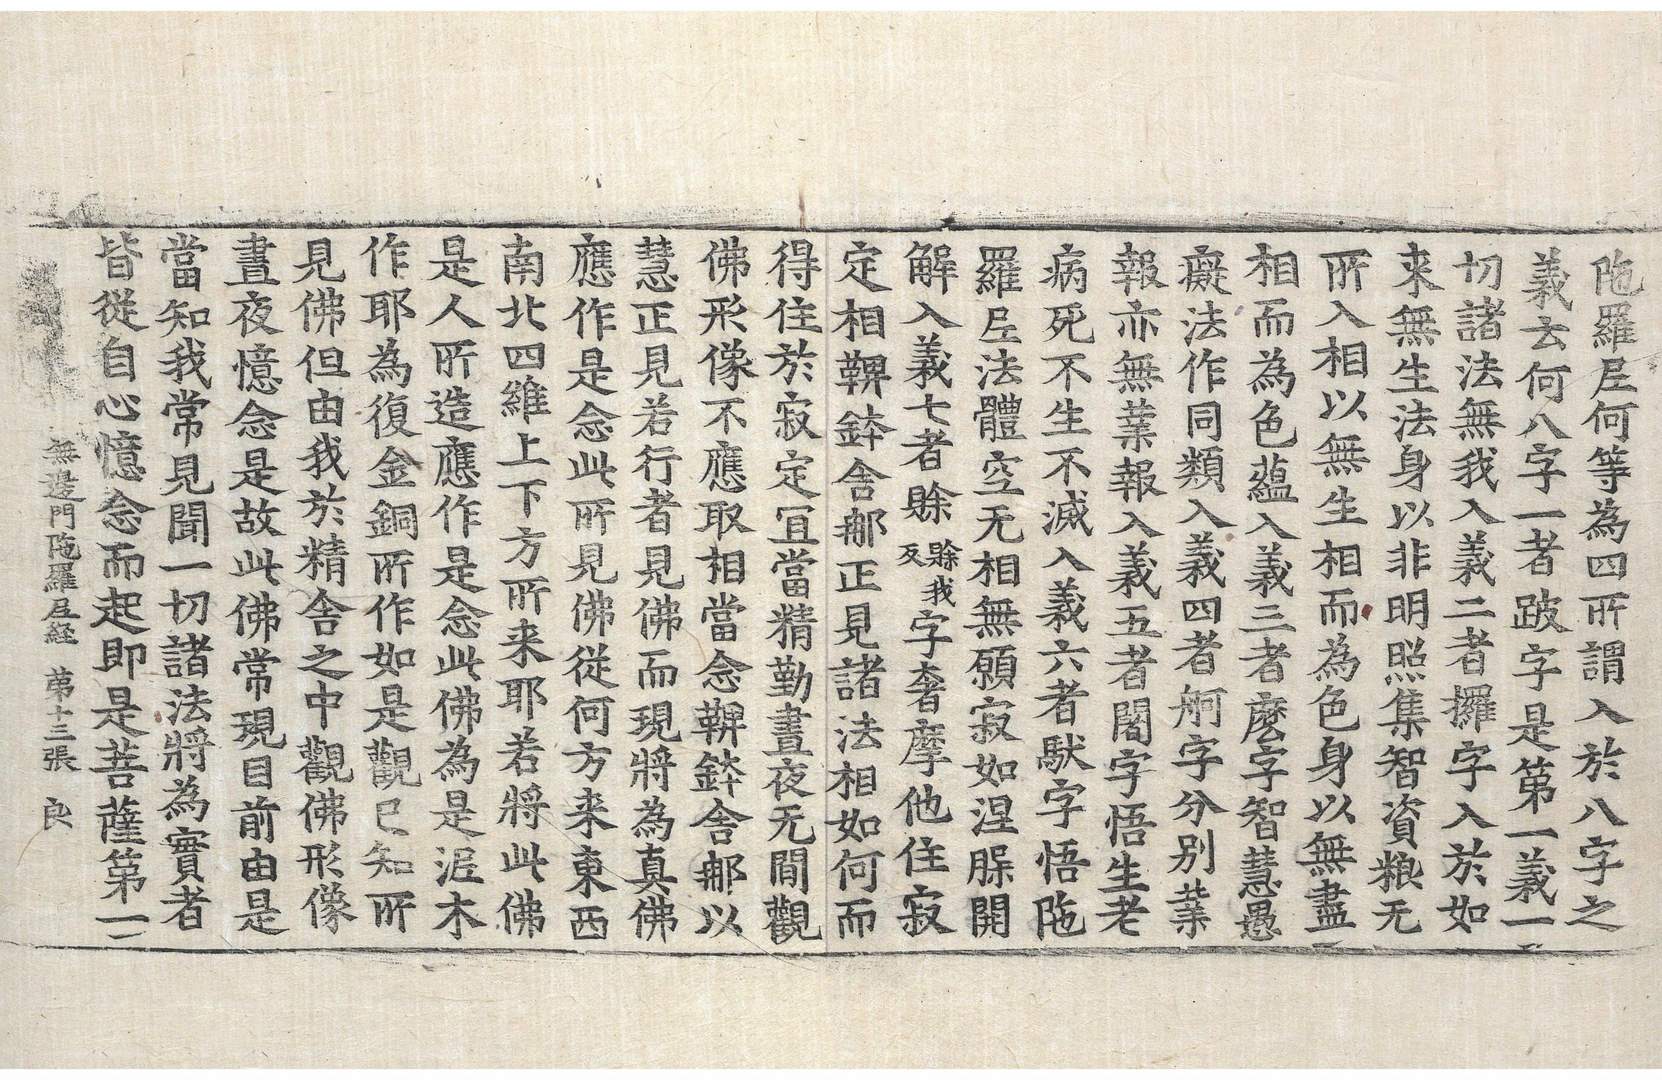 陁羅𡰱何等為四所謂入於八字之
義云何八字一者跛字是第一義一
切諸法無我入義二者攞字入於如
来無生法身以非明照集智資粮无
所入相以無生相而為色身以無盡
相而為色藴入義三者麽字智慧愚
癡法作同類入義四者舸字分別業
報亦無業報入義五者闍字悟生老
病死不生不滅入義六者馱字悟陁
羅𡰱法體空无相無願寂如涅脲開
解入義七者賖賖我反字奢摩他住寂
定相鞞鉢舍𨚗正見諸法相如何而
得住於寂定冝當精勤晝夜无間觀
佛形像不應取相當念鞞鉢舍𨚗以
慧正見若行者見佛而現將為真佛
應作是念此所見佛從何方来東西
南北四維上下方所来耶若將此佛
是人所造應作是念此佛為是泥木
作耶為復金銅所作如是觀已知所
見佛但由我於精舍之中觀佛形像
晝夜憶念是故此佛常現目前由是
當知我常見聞一切諸法將為實者
皆從自心憶念而起即是菩薩第一
無邊門陁羅𡰱経 第十三張 良